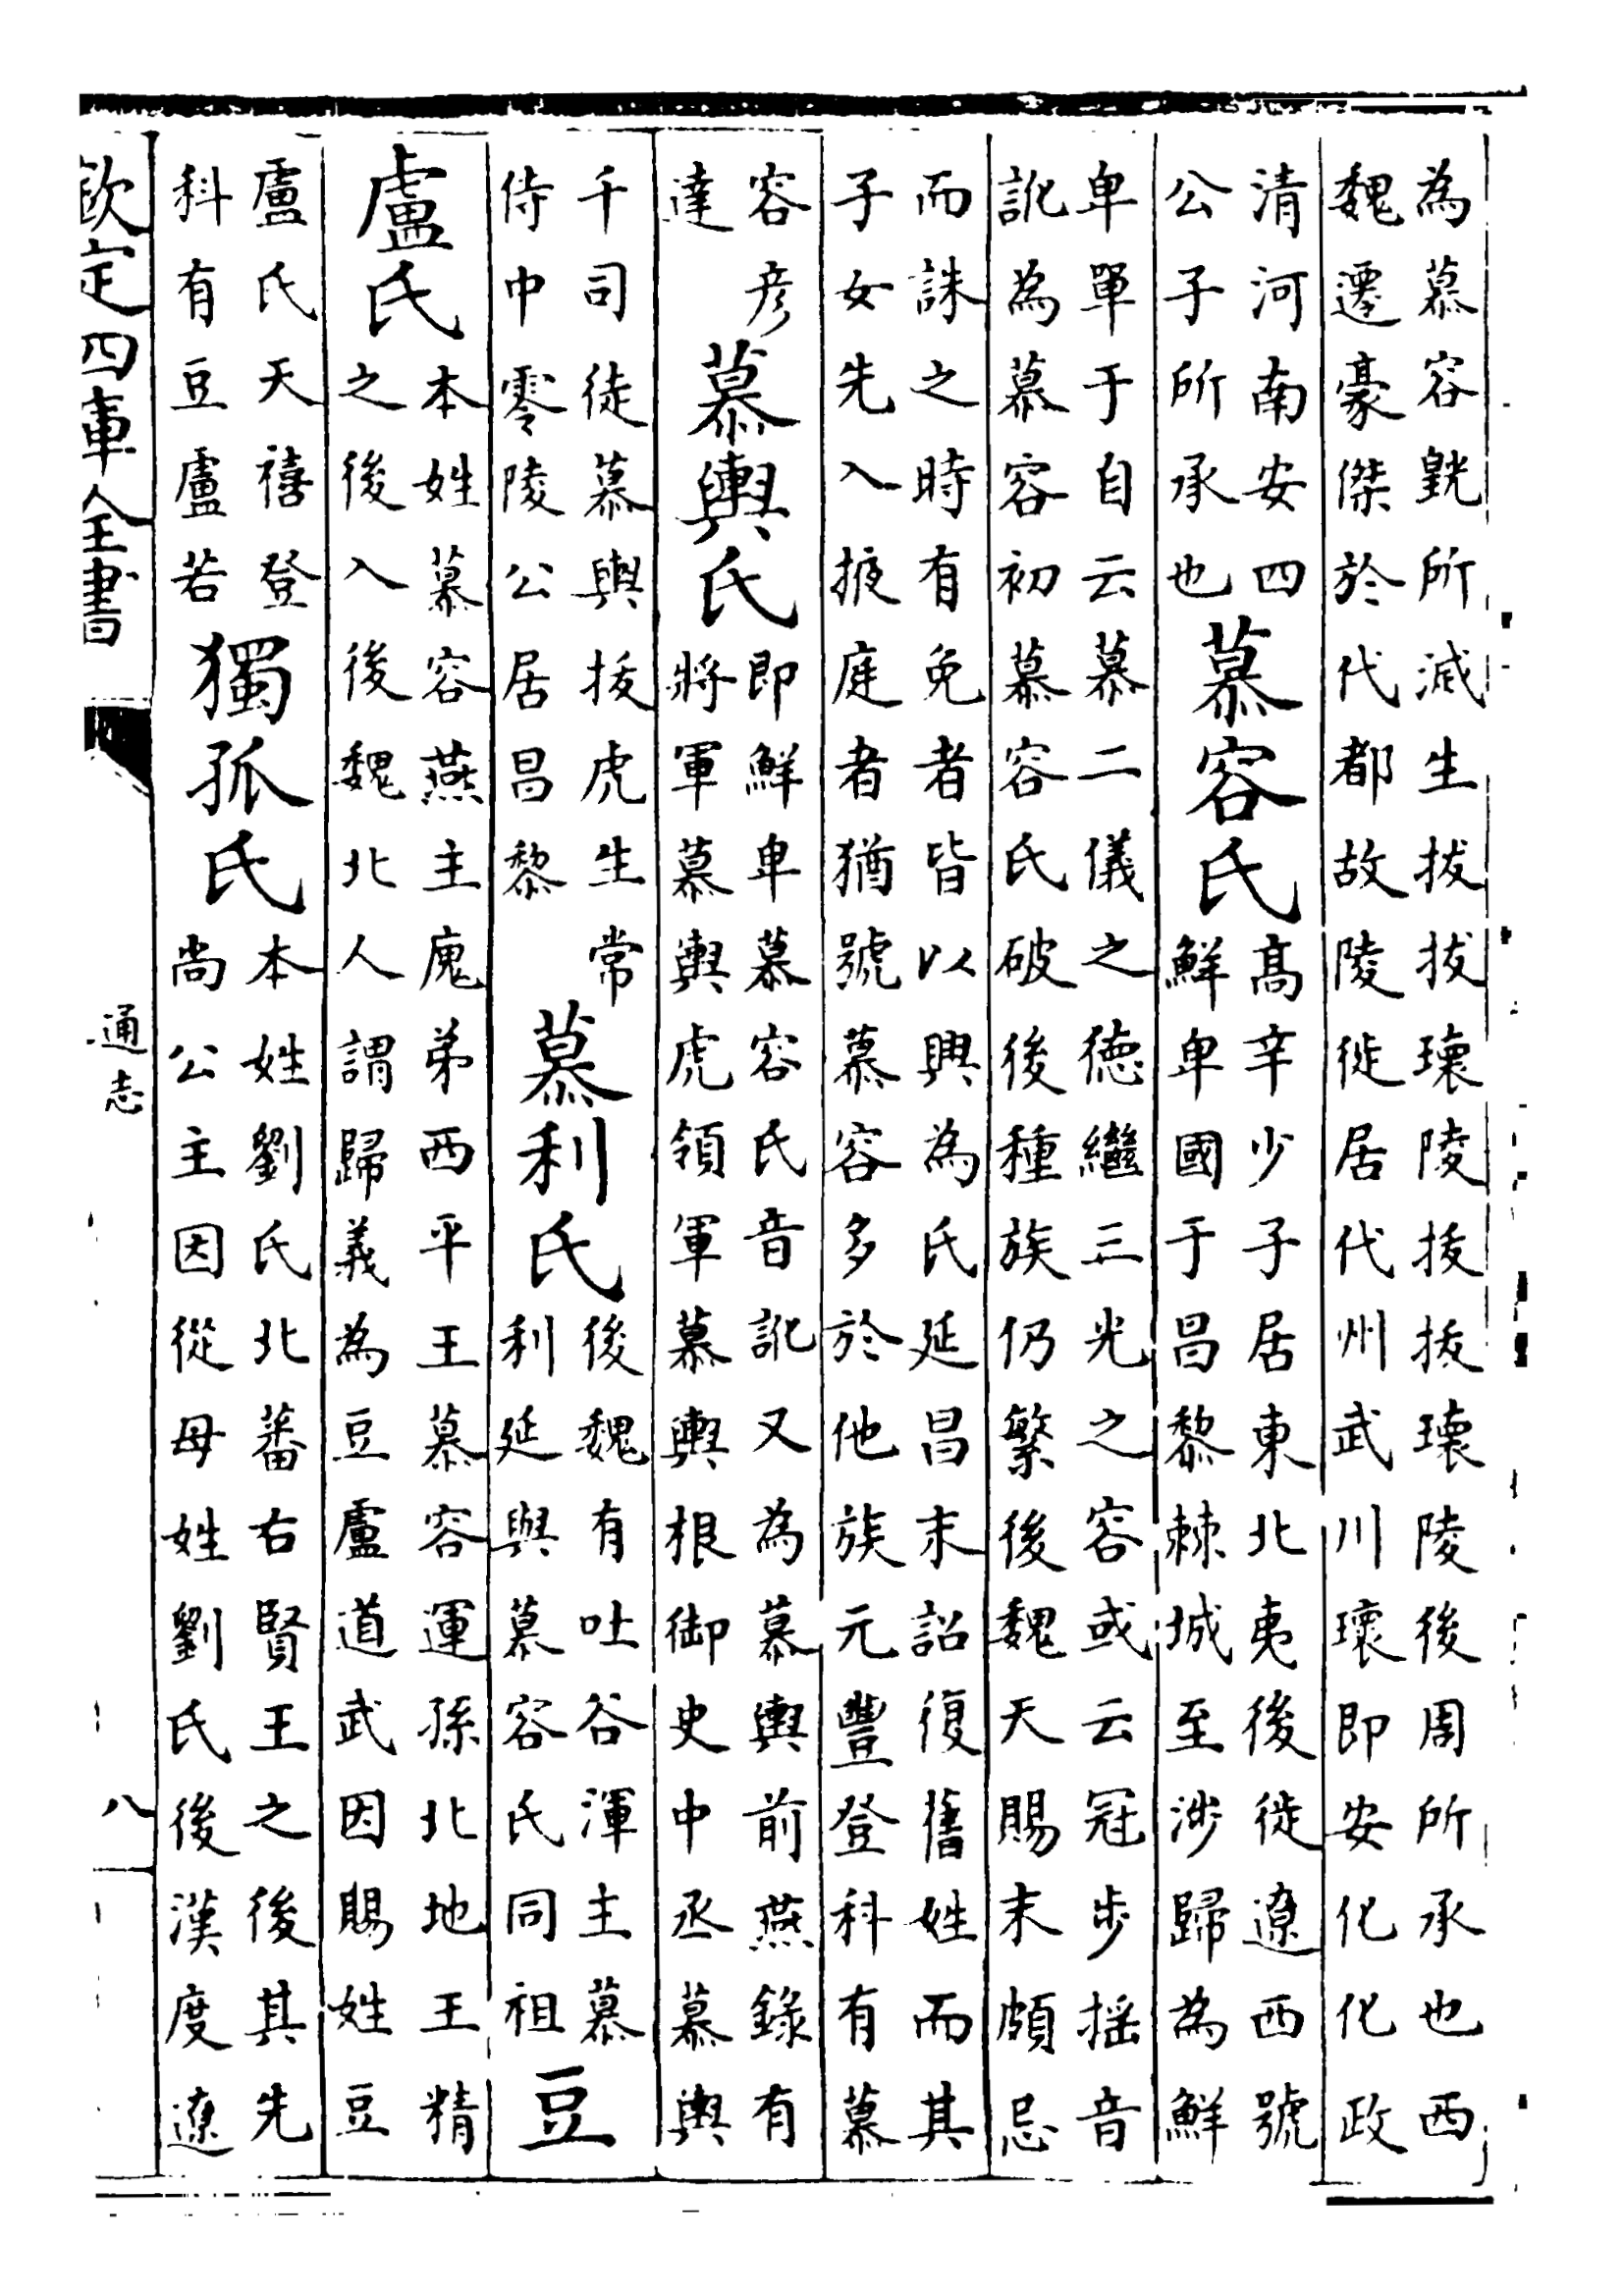 為慕容皝所滅生拔拔瓌陵拔拔瓌陵後周所承也西
魏遷豪傑於代都故陵徙居代州武川瓌即安化化政
清河南安四
公子所承也
慕容氏
高辛少子居東北夷後徙遼西號
鮮卑國于昌黎棘城至涉歸為鮮
卑單于自云慕二儀之徳繼三光之容或云冠步揺音
訛為慕容初慕容氏破後種族仍繁後魏天賜末頗忌
而誅之時有免者皆以興為氏延昌末詔復舊姓而其
子女先入掖庭者猶號慕容多於他族元豐登科有慕
容彦
達
慕輿氏
即鮮卑慕容氏音訛又為慕輿前燕錄有
將軍慕輿虎領軍慕輿根御史中丞慕輿
千司徒慕輿拔虎生常
侍中零陵公居昌黎
慕利氏
後魏有吐谷渾主慕
利延與慕容氏同祖
豆
盧氏
本姓慕容燕主廆弟西平王慕容運孫北地王精
之後入後魏北人謂歸義為豆盧道武因賜姓豆
盧氏天禧登
科有豆盧若
獨孤氏
本姓劉氏北蕃右賢王之後其先
尚公主因從母姓劉氏後漢度遼
欽定四庫全書
通志
八